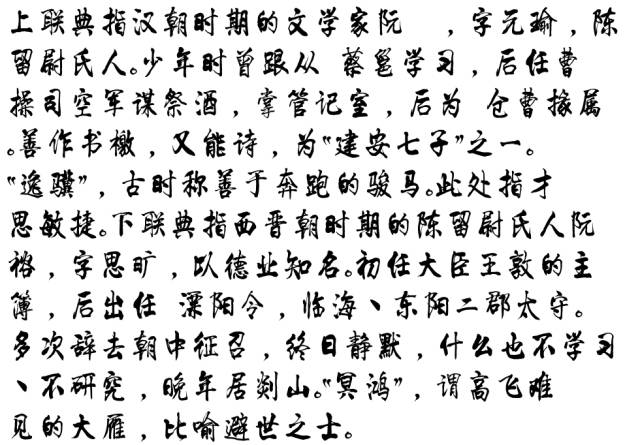 上联典指汉朝时期的文学家阮 ，字元瑜，陈
留尉氏人。少年时曾跟从 蔡邕学习，后任曹
操司空军谋祭酒，掌管记室，后为 仓曹掾属
。善作书檄，又能诗，为“建安七子”之一。
“逸骥”，古时称善于奔跑的骏马。此处指才
思敏捷。下联典指西晋朝时期的陈留尉氏人阮
裕，字思旷，以德业知名。初任大臣王敦的主
簿，后出任 溧阳令，临海丶东阳二郡太守。
多次辞去朝中征召，终日静默，什么也不学习
丶不研究，晚年居剡山。“冥鸿”，谓高飞难
见的大雁，比喻避世之士。